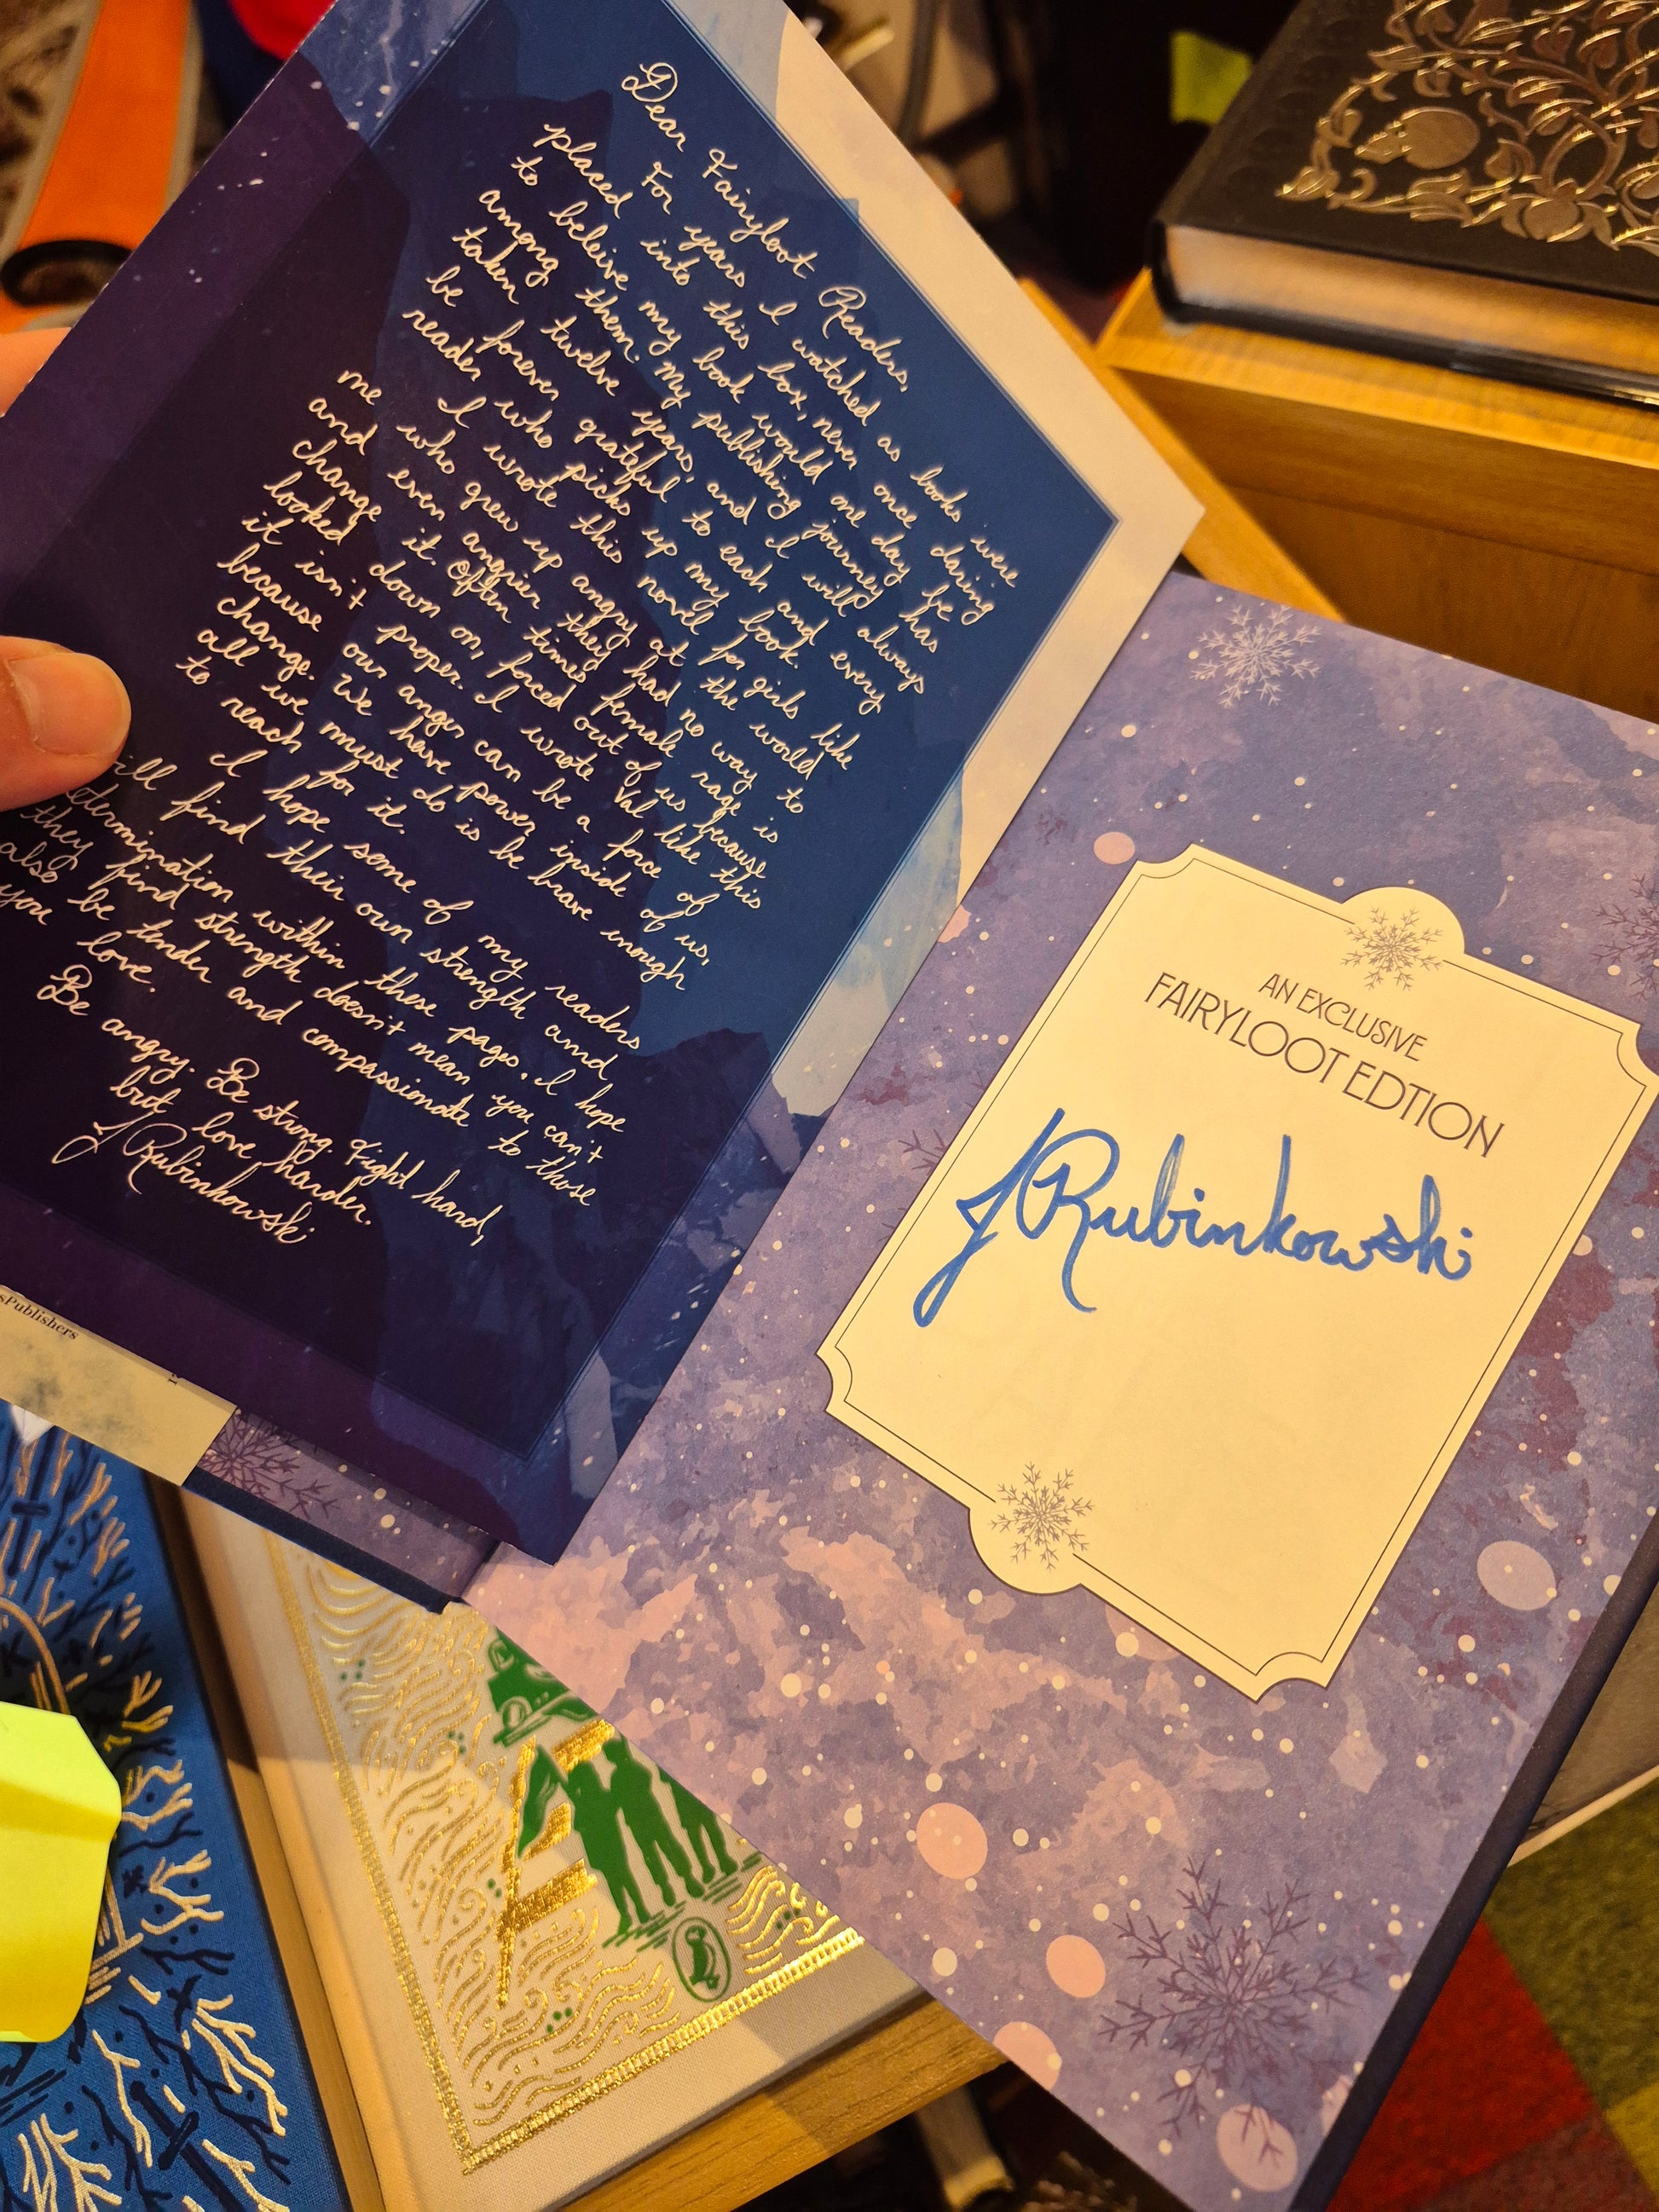 Dear Fairyloot Readers,
For years I watched as books were
placed into this box, never once daring
to beleive my book would one day be
among them. My publishing journey has
taken twelve years, and I will always
be forever grateful to each and every
reader who picks up my book.
I wrote this novel for girls like
me who grew up angry at the world
and even angrier they had no way to
change it. Often times female rage is
looked down on, forced out of us because
it isn't proper. I wrote Val like this
because our anger can be a force of
change. We have power inside of us,
all we must do is be brave enough
to reach for it.
I hope some of my readers
will find their own strength and
determination within these pages. I hope
they find strength doesn't mean you can't
also be tender and compassionate to those
you love.
Be angry. Be strong. Fight hard,
but love harder.
J Rubinkowski
sPublishers
AN EXCLUSIVE
FAIRYLOOT EDTION
J Rubinkowski